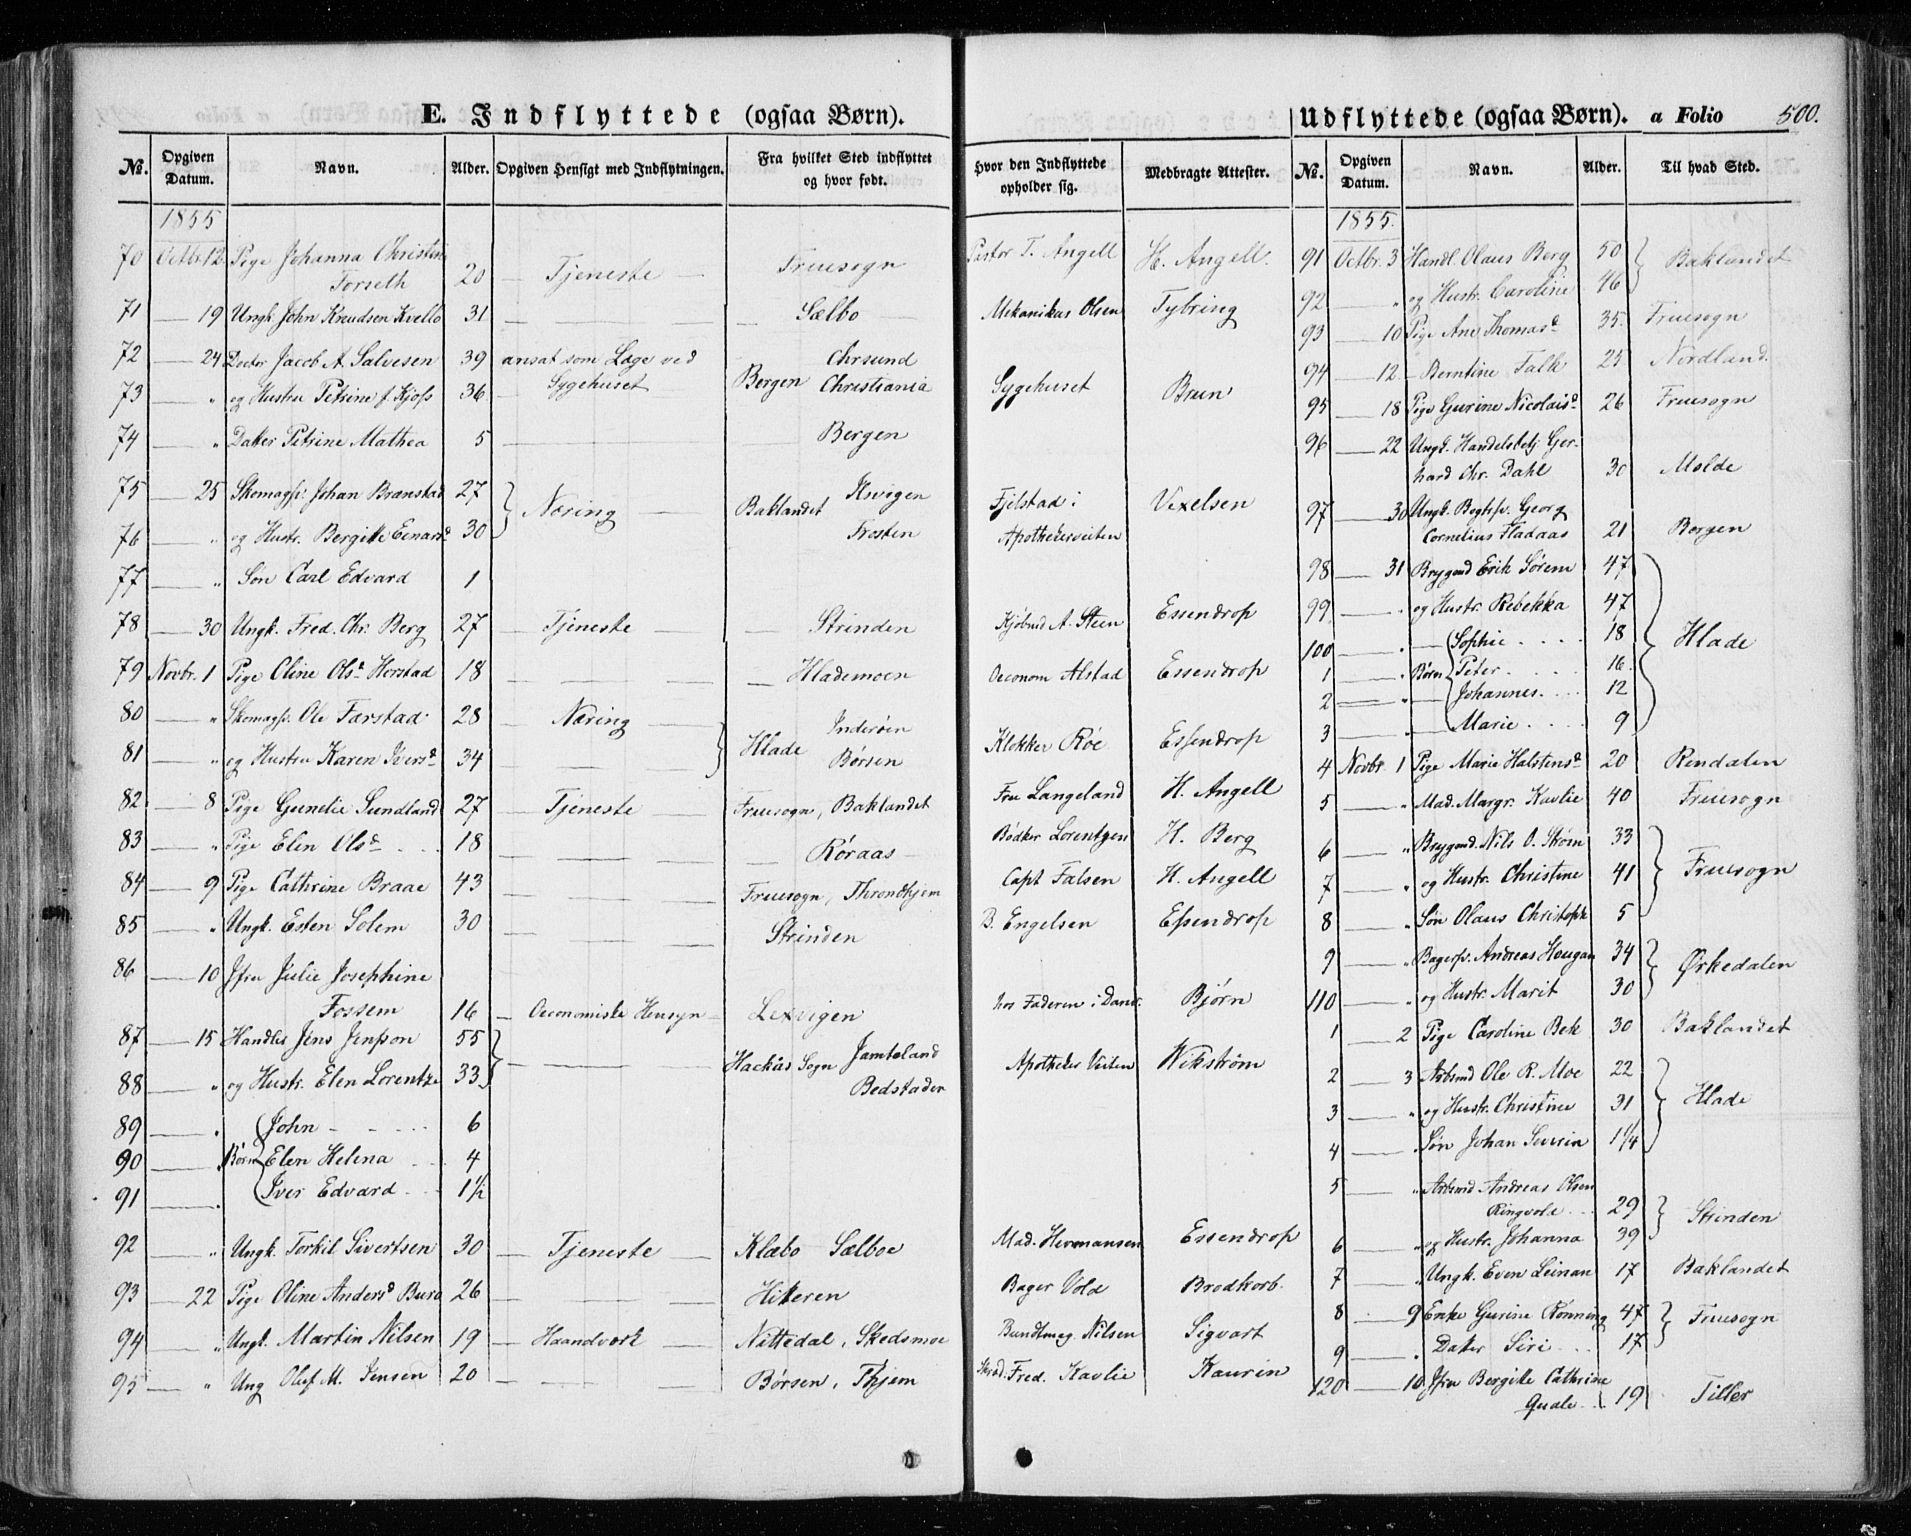 E. Indflyttede (ogsaa Børn).
Udflyttede (ogsaa Børn). a Folio 500.
No. Opgiven Datum. Navn. Alder. Opgiven Hensigt med Indflytningen. Fra hvilket Sted indflyttet og hvor født. Hvor den Indflyttede opholder sig. Medbragte Attester.
1855
70 Octbr. 12 Pige Johanna Christine
Forseth 20 — Tjeneste — Fruesogn Pastor T. Angell H. Angell.
71 — 19 Ungk. John Knudsen Kvello 31 — — — Sælbo Mekanikus Olsen Tybring
72 — 24 Doctor Jacob A. Salvesen 39 ansat som Læge ved Chrsund
73 — " og Hustru Petrine f. Kjøss 36 Sygehuset Bergen Christiania Sygehuset Brun
74 — " Datter Petrine Mathea 5 — Bergen
75 — 25 Skomagsv. Johan Branstad 27 Næring — Baklandet Fjelstad i Vexelsen
76 — " og Hustr. Bergitte Einarsd. 30 Frosten Apothekerveiten
77 — " Søn Carl Edvard 1
78 — 30 Ungk. Fred. Chr. Berg 27 — Tjeneste — Strinden Kjøbmd A. Steen Essendrop
79 Novbr. 1 Pige Oline Olsd. Horstad 18 — — — Hlademoen Oeconom Alstad Essendrop
80 — " Skomagsv. Ole Farstad 28 — Næring — Inderøen
81 — " og Hustru Karen Iversd. 34 — — — Hlade Børsen Klokker Røe Essendrop
82 — 8 Pige Gunelie Sundland 27 — Tjeneste — Fruesogn, Baklandet Fru Langeland H. Angell
83 — " Pige Elen Olsd. 18 — — — Røraas Bødker Lorentzen H. Berg
84 — 9 Pige Cathrine Braae 43 — — — Fruesogn, Throndhjem Capt Falsen H. Angell
85 — " Ungk. Esten Solem 30 — — — Strinden B. Engelsen Essendrop
86 — 10 Jfru Julie Josephine
Fossem 16 — Oeconomiske Hensyn — Lexvigen hos Faderen i Bjørn
87 — 15 Handler Jens Jensson 55 Hackås Sogn Jamteland Apotheker Veiten Wikstrøm
88 — " og Hustr. Elen Lorentze 33 Bedstaden
89 — " John 6
90 — " Børn Elen Helena 4
91 — " Iver Edvard 1½
92 — " Ungk. Torkil Sivertsen 30 — Tjeneste — Klæbo Sælboe Mad. Hermansen Essendrop
93 — 22 Pige Oline Andersd. Buro 26 — — — Hiteren Bager Vold Brodkorb.
94 — " Ungk. Martin Nilsen 19 — Haandverk — Nittedal, Skedsmoe Bundtmag. Nilsen Sigvart
95 — " Ung Oluf M. Jensen 20 — — — Børsen, Thjem Skrad. Fred. Kavlie Kaurin
No. Opgiven Datum. Navn. Alder. Til hvad Sted.
1855.
91 Octbr. 3 Handl. Olaus Berg 50 Baklandet
92 — " og Hustr. Caroline 46
93 — 10 Pige Ane Thomasd. 35. Fruesogn
94 — 12 — Berntine Falk 25 Nordland.
95 — 18 Pige Gurine Nicolaisd. 26 Fruesogn
96 — 22 Ungk. Handelsbetj Ger-
hard Chr. Dahl 30 Molde
97 — 30 Ungk. Bogtr. Georg
Cornelius Fladaas 21 Bergen
98 — 31 Brygmd Erik Sørem 47 Hlade
99 — " og Hustr. Rebekka 47
100 — " Sophie 18
1 — " Børn Peter 16.
2 — " Johannes 12
3 — " Marie 9
4 Novbr. 1 Pige Marie Halstensd. 20 Rendalen
5 — " Mad. Margr. Kavlie 40 Fruesogn
6 — " Brygmd. Nils O. Strøm 33 Fruesogn
7 — " og Hustr. Christine 41
8 — " Søn Olaus Christoph 5
9 — " Bagersv. Andreas Hougan 34 Ørkedalen
110 — " og Hustr. Marit 30
1 — 2 Pige Caroline Bek 30 Baklandet
2 — 3 Arbmd Ole R. Moe 22 Hlade
3 — " og Hustr. Christine 31
4 — " Søn Johan Severin 1¼
5 — " Arbmd Andreas Olsen
Ringvold 29 Strinden
6 — " og Hustr. Johanna 39
7 — " Ungk. Even Leinan 17 Baklandet
8 — 9 Enke Gurine Rønning 47 Fruesogn
9 — " Datter Siri 17
120 — 10 Jfru Bergitte Cathrine
Quale 19 Tiller